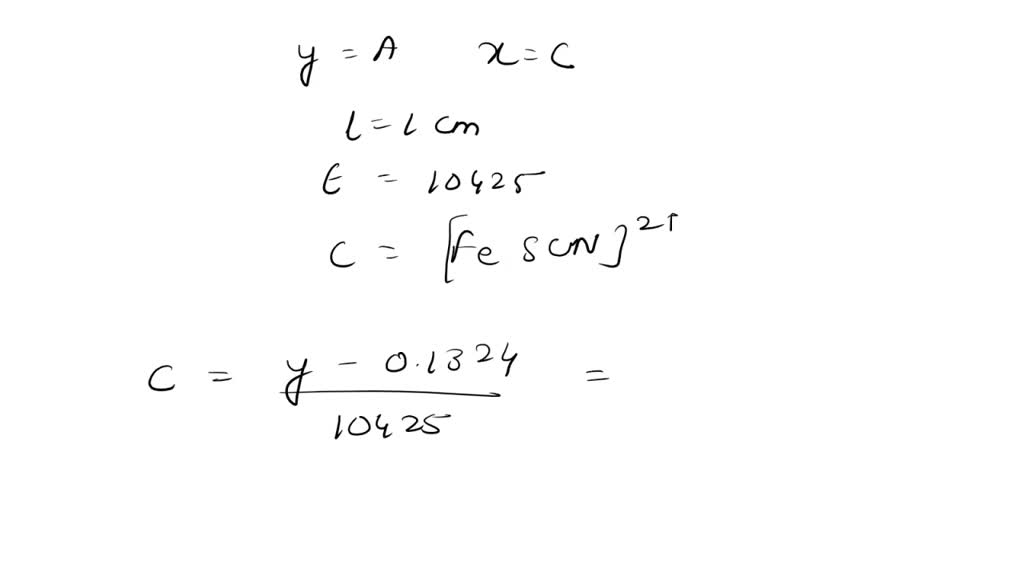 y = A x = C
l = 1 cm
ε = 10425
C = [Fe SCN]²⁺
C = y - 0.1324 / 10425 =